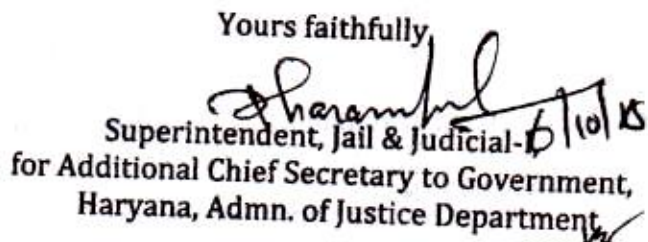 Yours faithfully,
Superintendent, Jail & Judicial- 6/10/15
for Additional Chief Secretary to Government,
Haryana, Admn. of Justice Department